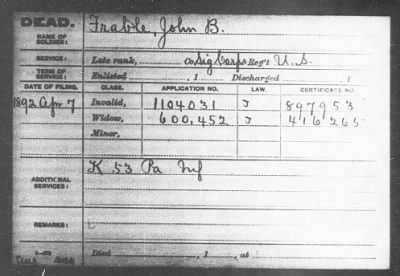 DEAD.
NAME OF SOLDIER:
Frable, John B.
SERVICE:
Late rank, Co. Sig Corps Reg't U. S.
TERM OF SERVICE:
Enlisted , 1 Discharged , 1
DATE OF FILING. CLASS. APPLICATION NO. LAW. CERTIFICATE NO.
1892 Apr 7 Invalid, 1104031 J 897953
Widow, 600,452 J 416265
Minor,
ADDITIONAL SERVICES:
K 53 Pa Inf
REMARKS:
Died , 1 , at